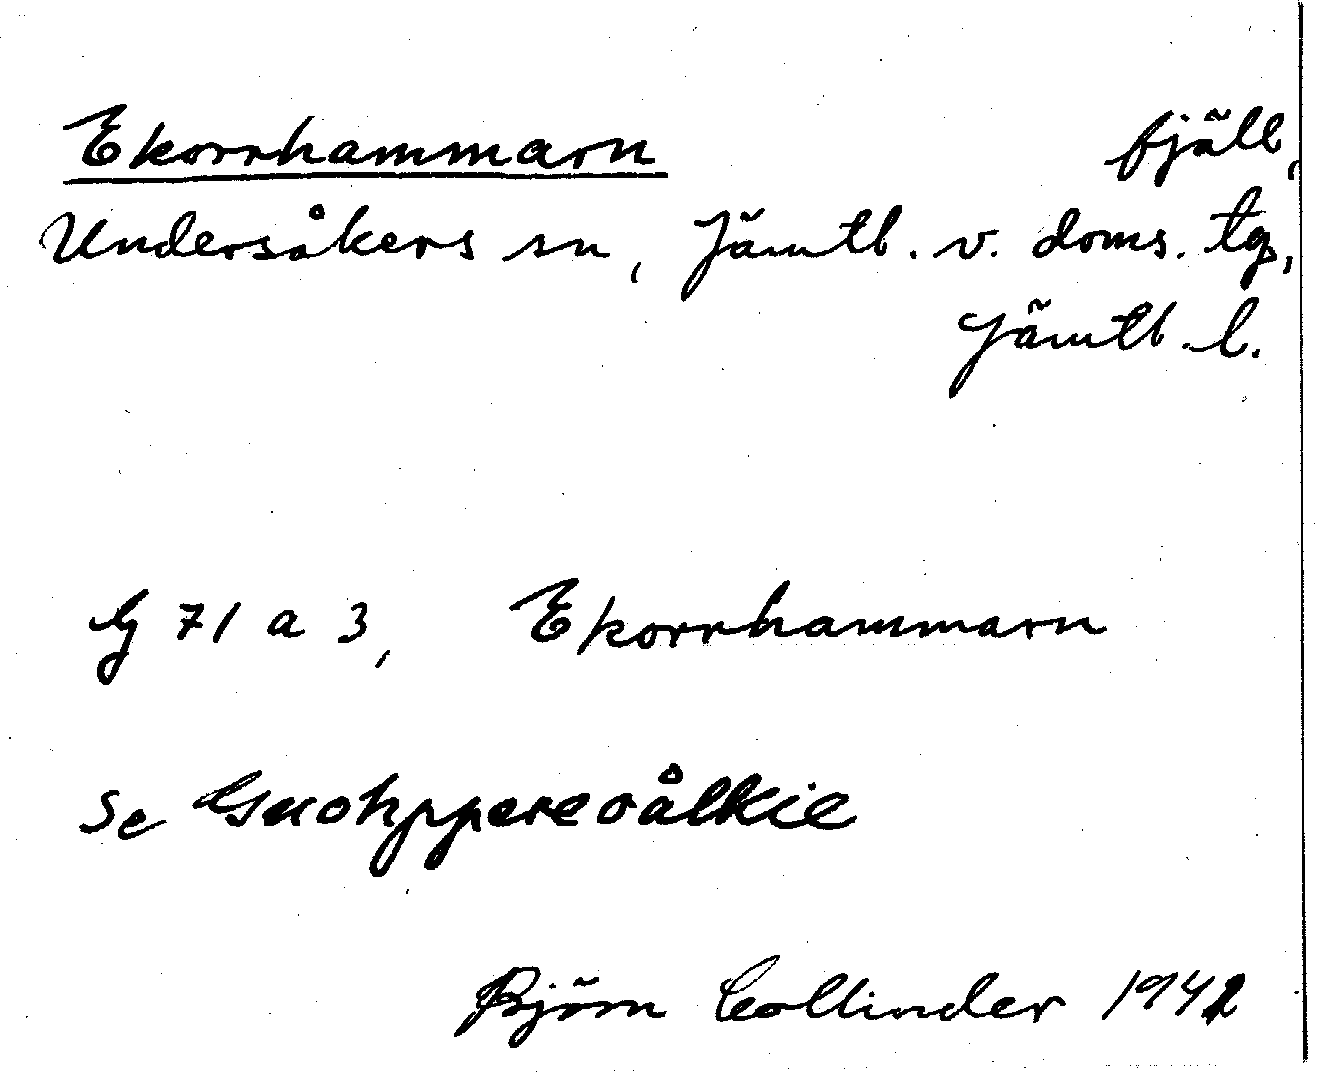 Ekorrhammarn fjäll,
Undersåkers sn, Jämtl. v. doms. tg,
Jämtl. l.
G 71 a 3, Ekorrhammarn
Se Guohpperevålkie
Björn Collinder 1942